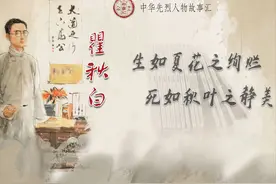 中华先烈人物故事汇
大道之行
天下为公
瞿秋白
生如夏花之绚烂
死如秋叶之静美